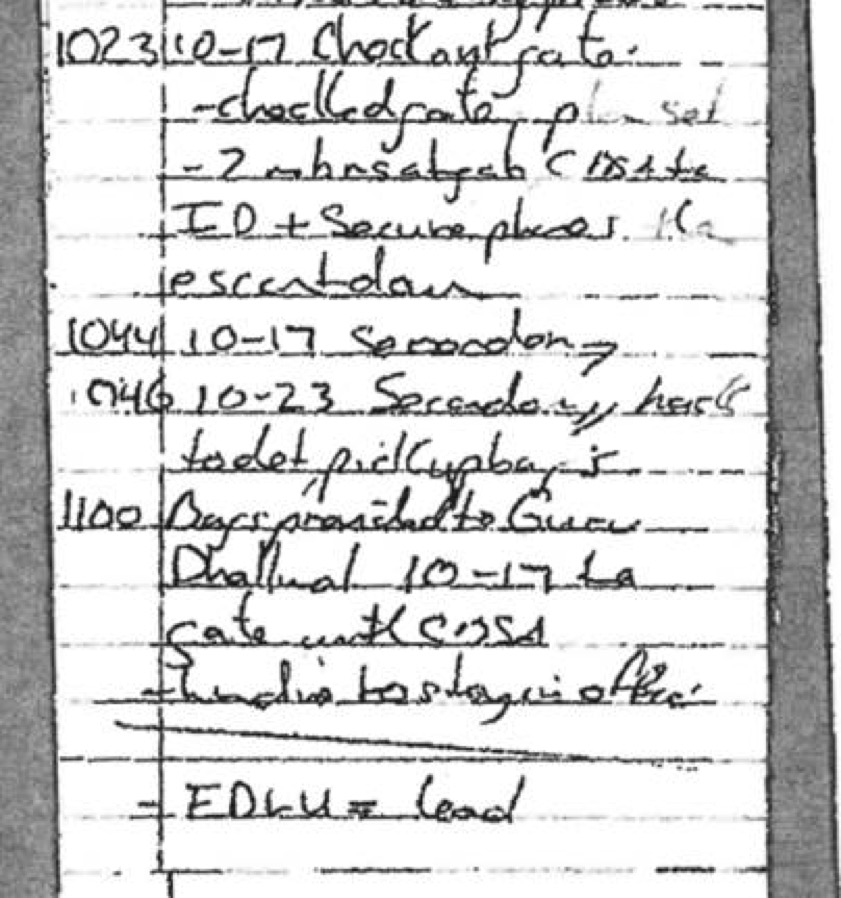 1023 10-17 Check at gate.
- checked gate, plan set
- 2 mbrs at gate CBSA to
ID + Secure phones. To
escort down
1044 10-17 Secondary
1046 10-23 Secondary, back
to det, pick up bags
1100 Bags provided to
Dhaliwal 10-17 to
gate with CBSA
- to stay in office.
- = lead